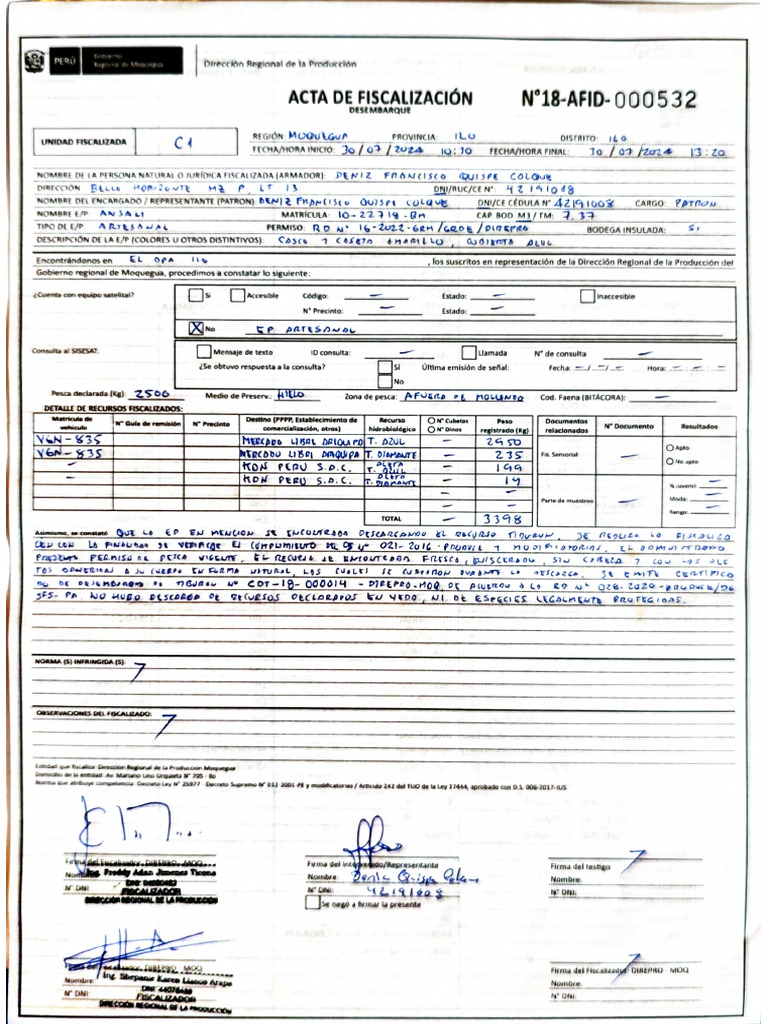 PERÚ Gobierno Regional de Moquegua Dirección Regional de la Producción
ACTA DE FISCALIZACIÓN N°18-AFID-000532
DESEMBARQUE
UNIDAD FISCALIZADA C1
REGIÓN: MOQUEGUA PROVINCIA: ILO DISTRITO: ILO
FECHA/HORA INICIO: 30/07/2024 10:30 FECHA/HORA FINAL: 30/07/2024 13:20
NOMBRE DE LA PERSONA NATURAL O JURÍDICA FISCALIZADA (ARMADOR): DENIZ FRANCISCO QUISPE COLQUE
DIRECCIÓN BELLO HORIZONTE MZ P, LT 13 DNI/RUC/CE N°: 42191008
NOMBRE DEL ENCARGADO / REPRESENTANTE (PATRON): DENIZ FRANCISCO QUISPE COLQUE DNI/CE CÉDULA N° 42191008 CARGO: PATRON
NOMBRE E/P ANJALI MATRÍCULA: 10-22719-BM CAP. BOD M3/TM: 7.37
TIPO DE E/P ARTESANAL PERMISO: RD N° 16-2022-GRM/GRDE/DIREPRO BODEGA INSULADA: SI
DESCRIPCIÓN DE LA E/P (COLORES U OTROS DISTINTIVOS): CASCO Y CASETA AMARILLO, CUBIERTA AZUL
Encontrándonos en EL DPA ILO, los suscritos en representación de la Dirección Regional de la Producción del
Gobierno regional de Moquegua, procedimos a constatar lo siguiente:
¿Cuenta con equipo satelital? Si Accesible Código: — Estado: — Inaccesible
N° Precinto: — Estado: —
X No EP ARTESANAL
Consulta al SISESAT: Mensaje de texto ID consulta: — Llamada N° de consulta —
¿Se obtuvo respuesta a la consulta? Sí Última emisión de señal: Fecha: —/—/— Hora: —
No
Pesca declarada (Kg) 2500 Medio de Preserv.: HIELO Zona de pesca: AFUERA DE MOLLENDO Cod. Faena (BITÁCORA): —
DETALLE DE RECURSOS FISCALIZADOS:
Matrícula de vehículo N° Guía de remisión N° Precinto Destino (PPPP, Establecimiento de comercialización, otros) Recurso hidrobiológico N° Cubetas N° Dinos Peso registrado (Kg) Documentos relacionados N° Documento Resultados
V6N-835 MERCADO LIBRE AREQUIPA T. AZUL — 2950
V6N-835 MERCADO LIBRE AREQUIPA T. DIAMANTE — 235
— KDN PERU S.A.C. ALETA T. AZUL — 199
— KDN PERU S.A.C. ALETA T. DIAMANTE — 14
TOTAL — 3398
Fis. Sensorial — Apto
No apto
Parte de muestreo — % Juvenil: —
Moda: —
Rango: —
Asimismo, se constató QUE LA EP EN MENCION SE ENCONTRABA DESCARGANDO EL RECURSO TIBURON, SE REALIZO LA FISCALIZA
CION CON LA FINALIDAD DE VERIFICAR EL CUMPLIMIENTO DEL DS N° 021-2016-PRODUCE Y MODIFICATORIAS. EL ADMINISTRADO
PRESENTA PERMISO DE PESCA VIGENTE. EL RECURSO SE ENCONTRABA FRESCO, EVISCERADO, SIN CABEZA Y CON LAS ALE
TAS ADHERIDAS A SU CUERPO EN FORMA NATURAL, LAS CUALES SE CORTARON DURANTE LA DESCARGA. SE EMITE CERTIFICA
DO DE DESEMBARQUE DE TIBURON N° CDT-18-000014-DIREPRO-MOQ, DE ACUERDO A LA RD N° 028-2020-PRODUCE/DG
SFS-PA. NO HUBO DESCARGA DE RECURSOS DECLARADOS EN VEDA, NI DE ESPECIES LEGALMENTE PROTEGIDAS.
NORMA (S) INFRINGIDA (S):
OBSERVACIONES DEL FISCALIZADO:
Entidad que fiscaliza: Dirección Regional de la Producción Moquegua
Domicilio de la entidad: Av. Mariano Lino Urquieta N° 705 - Ilo
Norma que atribuye competencia: Decreto Ley N° 25977 - Decreto Supremo N° 012-2001-PE y modificatorias / Artículo 242 del TUO de la Ley 27444, aprobado con D.S. 006-2017-JUS
Firma del Fiscalizador DIREPRO - MOQ
Nombre: Ing. Freddy Adan Jimenez Ticona
N° DNI:
FISCALIZADOR
DIRECCIÓN REGIONAL DE LA PRODUCCIÓN
Firma del Intervenido/Representante
Nombre: Deniz Quispe Colque
N° DNI: 42191008
Se negó a firmar la presente
Firma del testigo
Nombre:
N° DNI:
Firma del Fiscalizador DIREPRO - MOQ
Nombre: Ing. Karen
N° DNI:
FISCALIZADOR
DIRECCIÓN REGIONAL DE LA PRODUCCIÓN
Firma del Fiscalizador DIREPRO - MOQ
Nombre:
N° DNI: